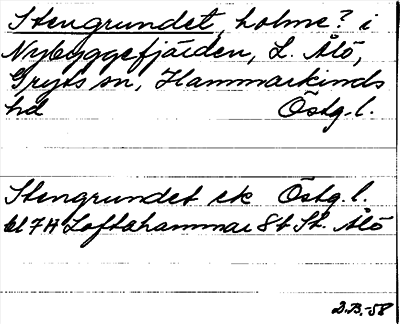 Stengrundet, holme? i
Nybyggefjärden, L. Ålö,
Gryts sn, Hammarkinds
hd Östg.l.
Stengrundet ek Östg.l.
bl 7H Loftahammar 8b St. Ålö
D.B.-58